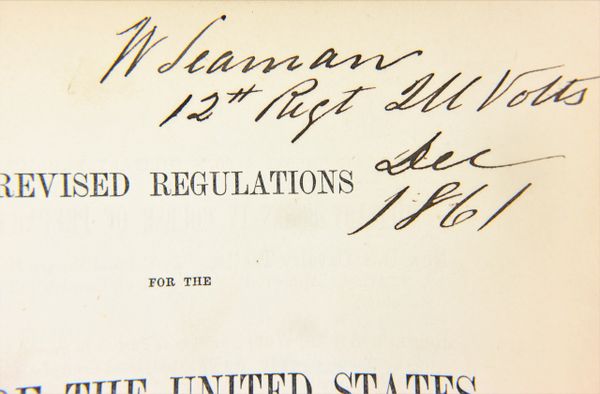 W Seaman
12th Regt Ill Volts
Dec
1861
REVISED REGULATIONS
FOR THE
OF THE UNITED STATES